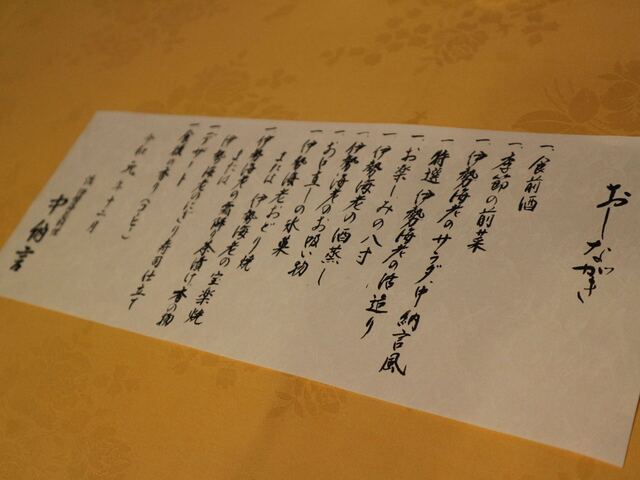 おしながき
一、食前酒
一、季節の前菜
一、伊勢海老のサラダ 中納言風
一、特選 伊勢海老の活造り
一、お楽しみの八寸
一、伊勢海老の酒蒸し
一、伊勢海老のお吸い物
一、お口直しの氷菓
一、伊勢海老おどり焼
または 伊勢海老の宝楽焼
一、伊勢海老の雑炊 茶漬け 香の物
または 伊勢海老のにぎり寿司仕立て
一、デザート
一、食後の香り
令和元年十二月
中納言